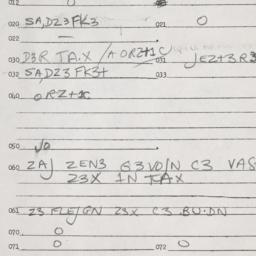 012
020 SA,DZ3FK3 021 O
022
030 D3R TA.X /A ORZ+1C 031 JEZ+3R3
032 SA,DZ3FK3+ 033
040 ORZ+1C
050 JO
060 ZAJ ZEN3 G3VO/N C3 VAS
Z3X IN TAX
061 Z3 FLE/GN Z3X C3 BU.DN
070 O
071 O 072 O